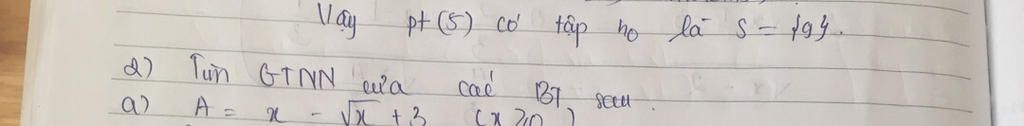 Vậy pt (5) có tập no là S = {9}.
2) Tìm GTNN của các BT sau.
a) A = x - √x + 3 (x ≥ 0)